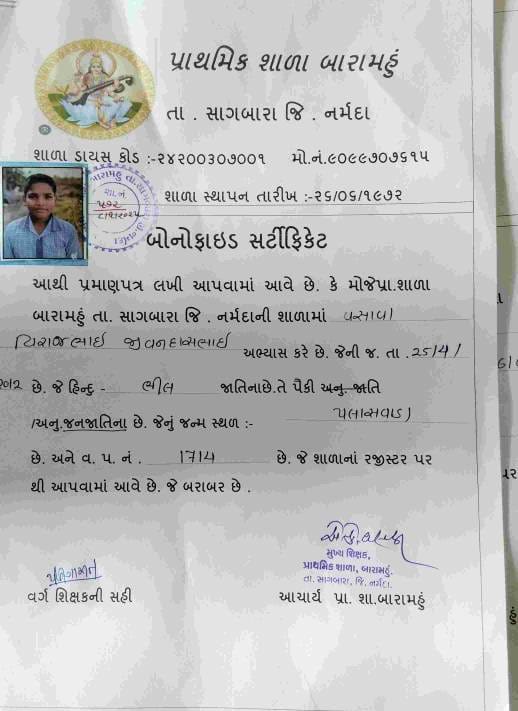 પ્રાથમિક શાળા બારામહું
તા . સાગબારા જિ . નર્મદા
શાળા ડાયસ કોડ :-૨૪૨૦૦૩૦૭૦૦૧ મો.નં.૯૦૯૯૭૦૭૬૧૫
શાળા સ્થાપન તારીખ :-૨૬/૦૬/૧૯૭૨
બોનોફાઇડ સર્ટીફિકેટ
આથી પ્રમાણપત્ર લખી આપવામાં આવે છે. કે મોજેપ્રા.શાળા
બારામહું તા. સાગબારા જિ . નર્મદાની શાળામાં વસાવા
ચિરાજભાઈ જીવનદાસભાઈ અભ્યાસ કરે છે. જેની જ. તા . 25/4/
૨૦૧૨ છે. જે હિન્દુ - ભીલ જાતિનાછે.તે પૈકી અનુ. જાતિ
/અનુ.જનજાતિના છે. જેનું જન્મ સ્થળ :- પલાસવાડા
છે. અને વ . પ. નં . 1714 છે . જે શાળાનાં રજીસ્ટર પર
થી આપવામાં આવે છે. જે બરાબર છે .
મુખ્ય શિક્ષક,
પ્રાથમિક શાળા, બારામહું.
તા. સાગબારા, જિ. નર્મદા.
વર્ગ શિક્ષકની સહી આચાર્ય પ્રા. શા.બારામહું